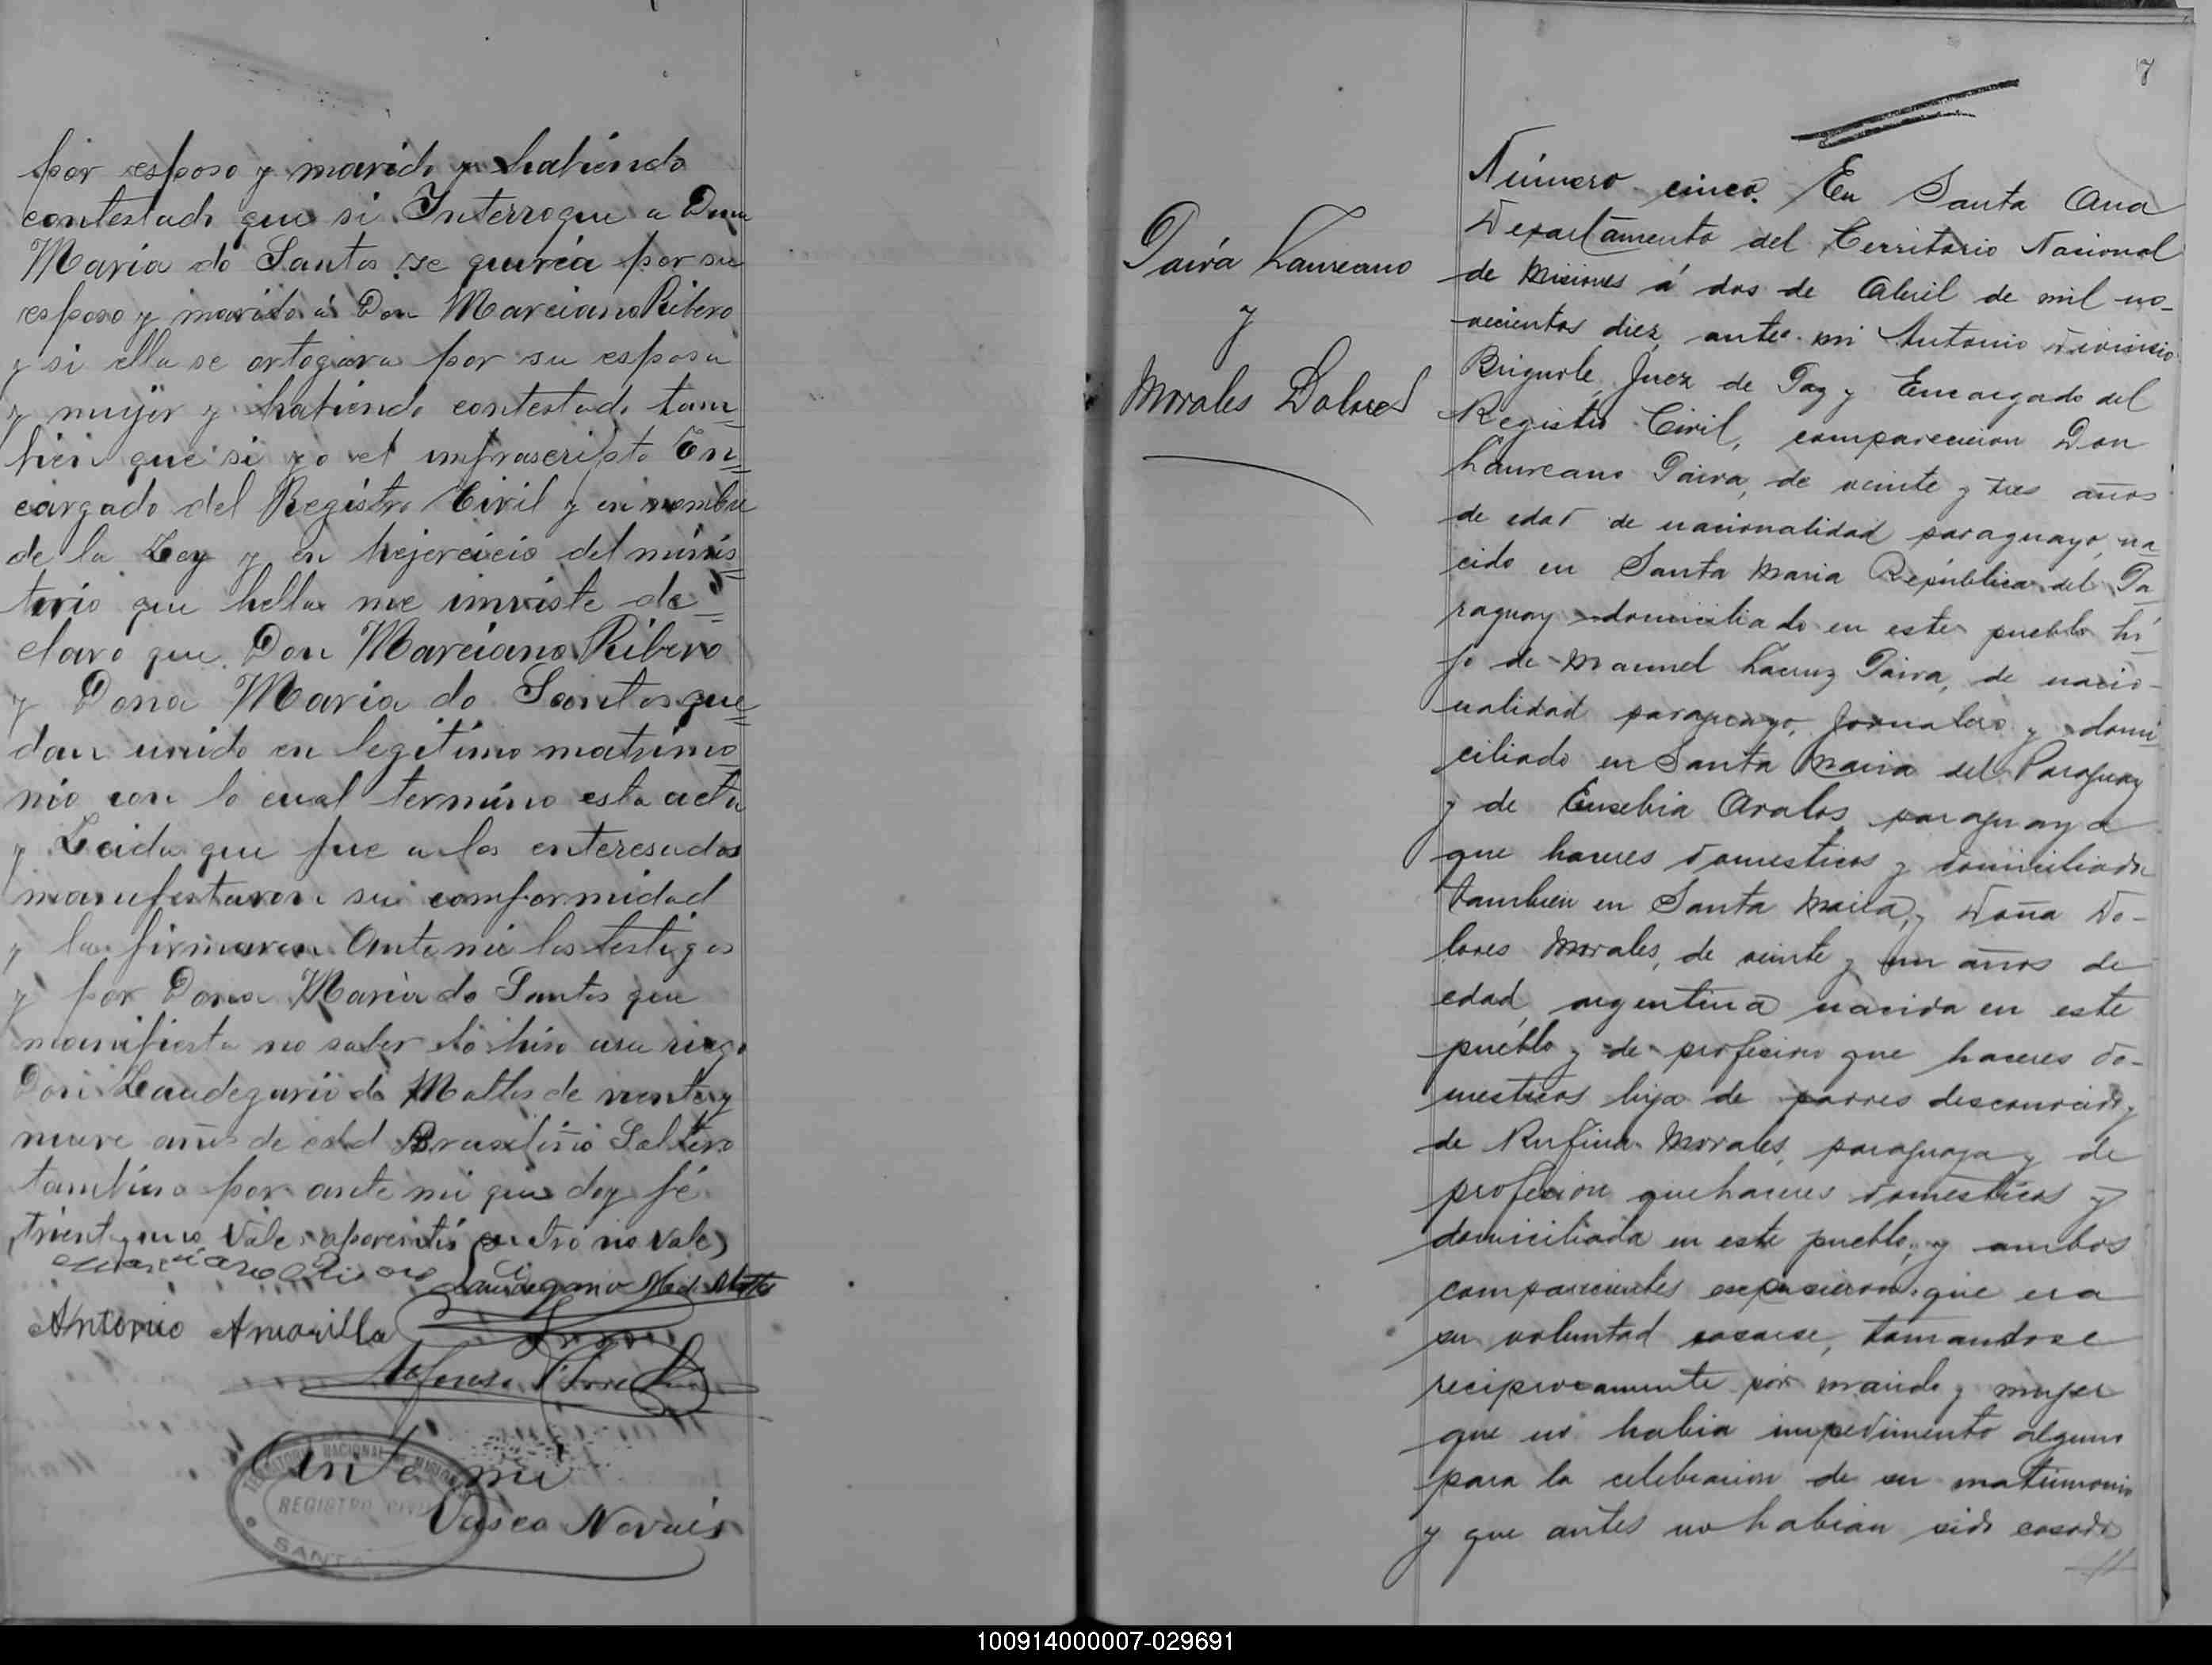 por esposo y marido y habiendo
contestado que si Interrogue a Dona
Maria do Santos se queria por su
esposo y marido a Don Marciano Ribero
y si ella se ortogara por su esposa
y mujer y habiendo contestado tam=
bien que si yo el infrascripto En=
cargado del Registro Civil y en nombre
de la Ley y en hejercicio del minis=
terio que hella me inviste de=
claro que Don Marciano Ribero
y Dona Maria do Santos que=
dan unido en legitimo matrimo=
nio con lo cual termino esta acta
y Leida que fue a los enteresados
manifestaron su comformidad
y la firmaron Ante mi los testigos
y por Dona Maria do Santos que
manifiesta no saber lo hiso a su riego
Don Laudegario de Mattos de viente y
nueve años de edad Brasiliño Soltero
tambien por ante mi que doy fé
trienta y uno Vale no vale)
Marciano Ribero Laudegario de Mattos
Antonio Amarilla
Alfonso
Ante mi
TERRITORIO NACIONAL DE MISIONES
REGISTRO CIVIL
Vasco Novais
SANTA
7
Paiva Laureano
y
Morales Dolores
Número cinco. En Santa Ana
Departamento del Territorio Nacional
de Misiones á dos de Abril de mil no-
vecientos diez, ante mi Antonio
Brignole, Juez de Paz y Encargado del
Registro Civil, comparecieron Don
Laureano Paiva, de veinte y tres años
de edad de nacionalidad paraguayo, na
cido en Santa Maria República del Pa
raguay domiciliado en este pueblo hi
jo de Manuel Paiva, de nacio-
nalidad paraguayo, jornalero y domi
ciliado en Santa Maria del Paraguay
y de Eusebia Avalos paraguaya
que haceres domesticos y domiciliada
tambien en Santa Maria, y Doña Do-
lores Morales, de veinte y un años de
edad, argentina nacida en este
pueblo y de profesion que haceres do-
mesticos hija de padres desconocido y
de Rufina Morales, paraguaya y de
profesion que haceres domesticos y
domiciliada en este pueblo, y ambos
comparecientes expusieron que era
su voluntad casarse, tomandose
reciprocamente por marido y mujer
que no habia impedimento alguno
para la celebracion de su matrimonio
y que antes no habian sido casados
100914000007-029691